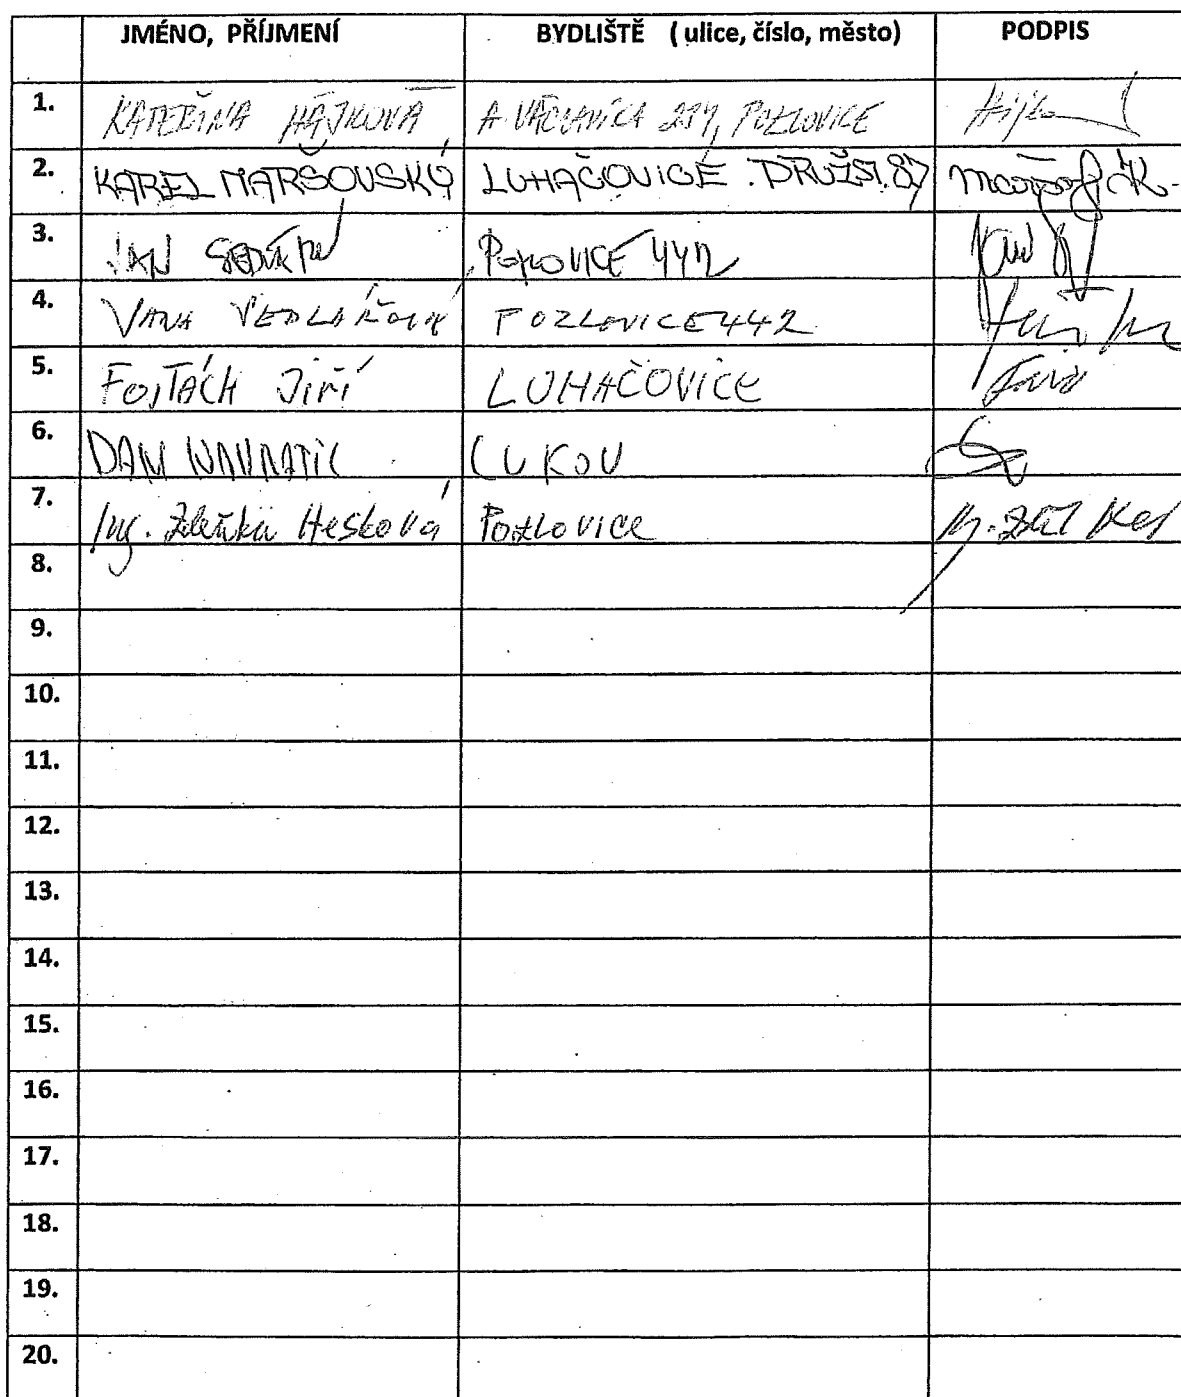 JMÉNO, PŘÍJMENÍ BYDLIŠTĚ ( ulice, číslo, město) PODPIS
1. KATEŘINA HÁJKOVÁ A. VÁCLAVÍKA POZLOVICE
2. KAREL MARŠOVSKÝ LUHAČOVICE. DRUŽST. 87
3. JAN POZLOVICE 442
4. POZLOVICE 442
5. FOJTÁCH JIŘÍ LUHAČOVICE
6. DAN NAVRÁTIL LUKOV
7. Ing. Zdeňka Hesková Pozlovice
8.
9.
10.
11.
12.
13.
14.
15.
16.
17.
18.
19.
20.